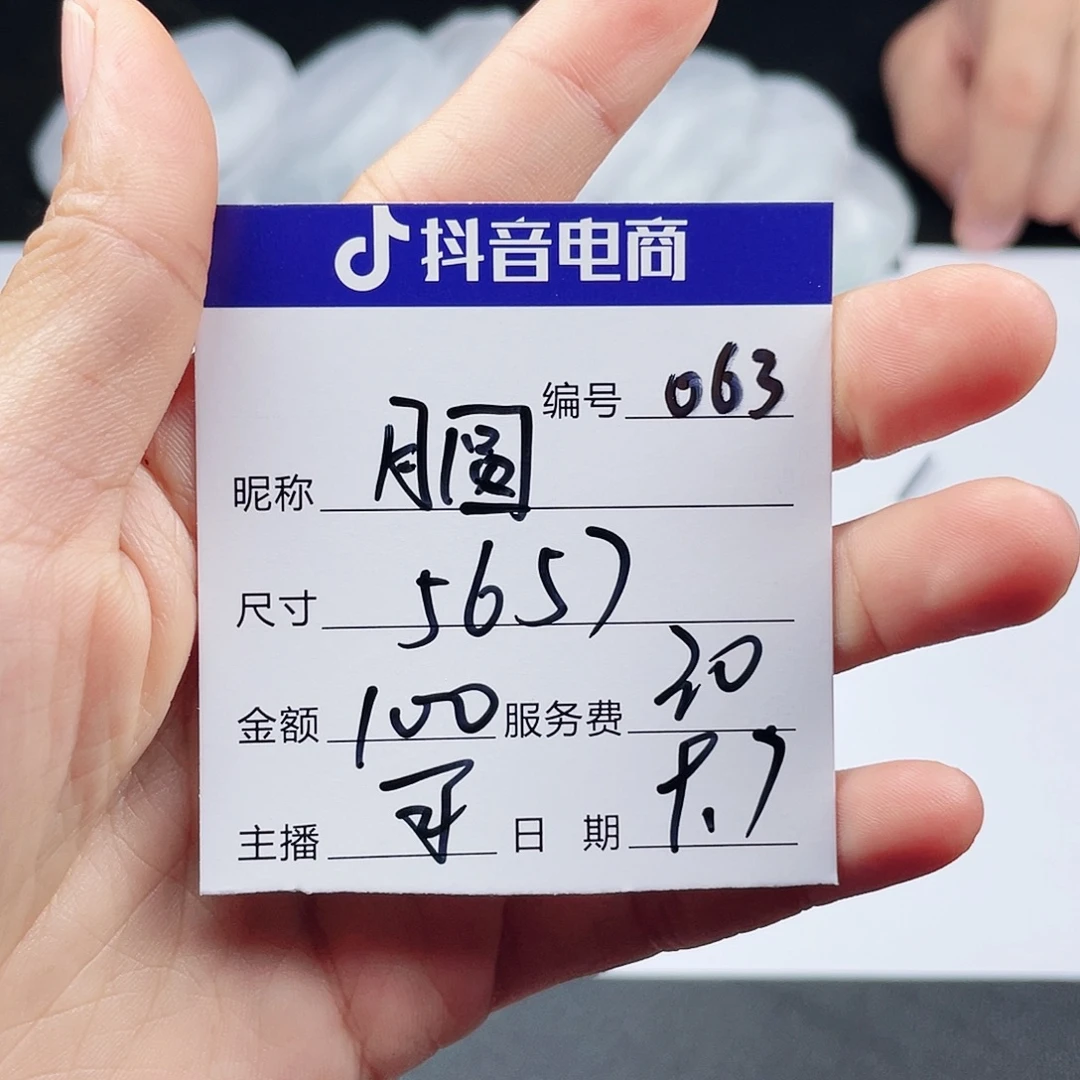 抖音电商
编号 063
昵称 月圆
尺寸 5657
金额 100 服务费 20
主播 日 期 7